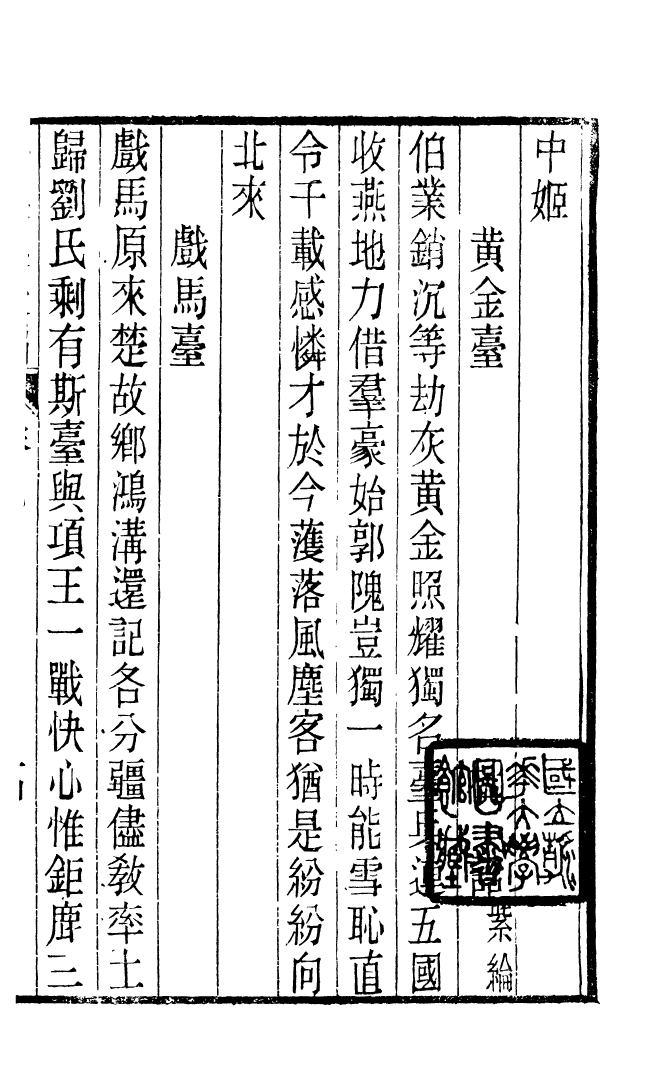 中姬
黃金臺
紫綸
伯業銷沉等劫灰黃金照耀獨名臺兵連五國
收燕地力借羣豪始郭隗豈獨一時能雪恥直
令千載感憐才於今濩落風塵客猶是紛紛向
北來
戲馬臺
戲馬原來楚故鄉鴻溝還記各分疆儘敎率土
歸劉氏剩有斯臺與項王一戰快心惟鉅鹿三
國立
大學
圖書